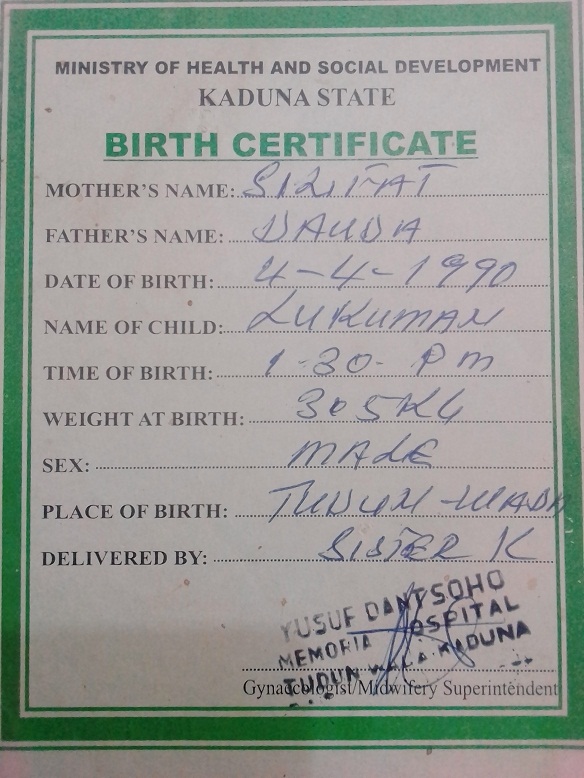 MINISTRY OF HEALTH AND SOCIAL DEVELOPMENT
KADUNA STATE
BIRTH CERTIFICATE
MOTHER'S NAME: SILIFAT
FATHER'S NAME: DAUDA
DATE OF BIRTH: 4-4-1990
NAME OF CHILD: LUKUMAN
TIME OF BIRTH: 1-30- Pm
WEIGHT AT BIRTH: 305KG
SEX: MALE
PLACE OF BIRTH: TUDUN-WADA
DELIVERED BY: SISTER K
YUSUF DANTSOHO
MEMORIA HOSPITAL
TUDUN WADA KADUNA
Gynaecologist/Midwifery Superintendent